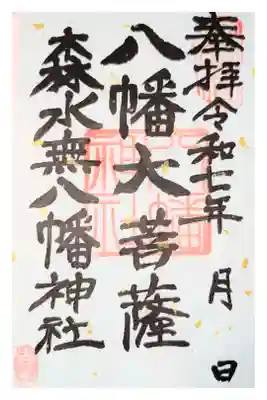 奉拝令和七年 月 日
八幡大菩薩
森水無八幡神社